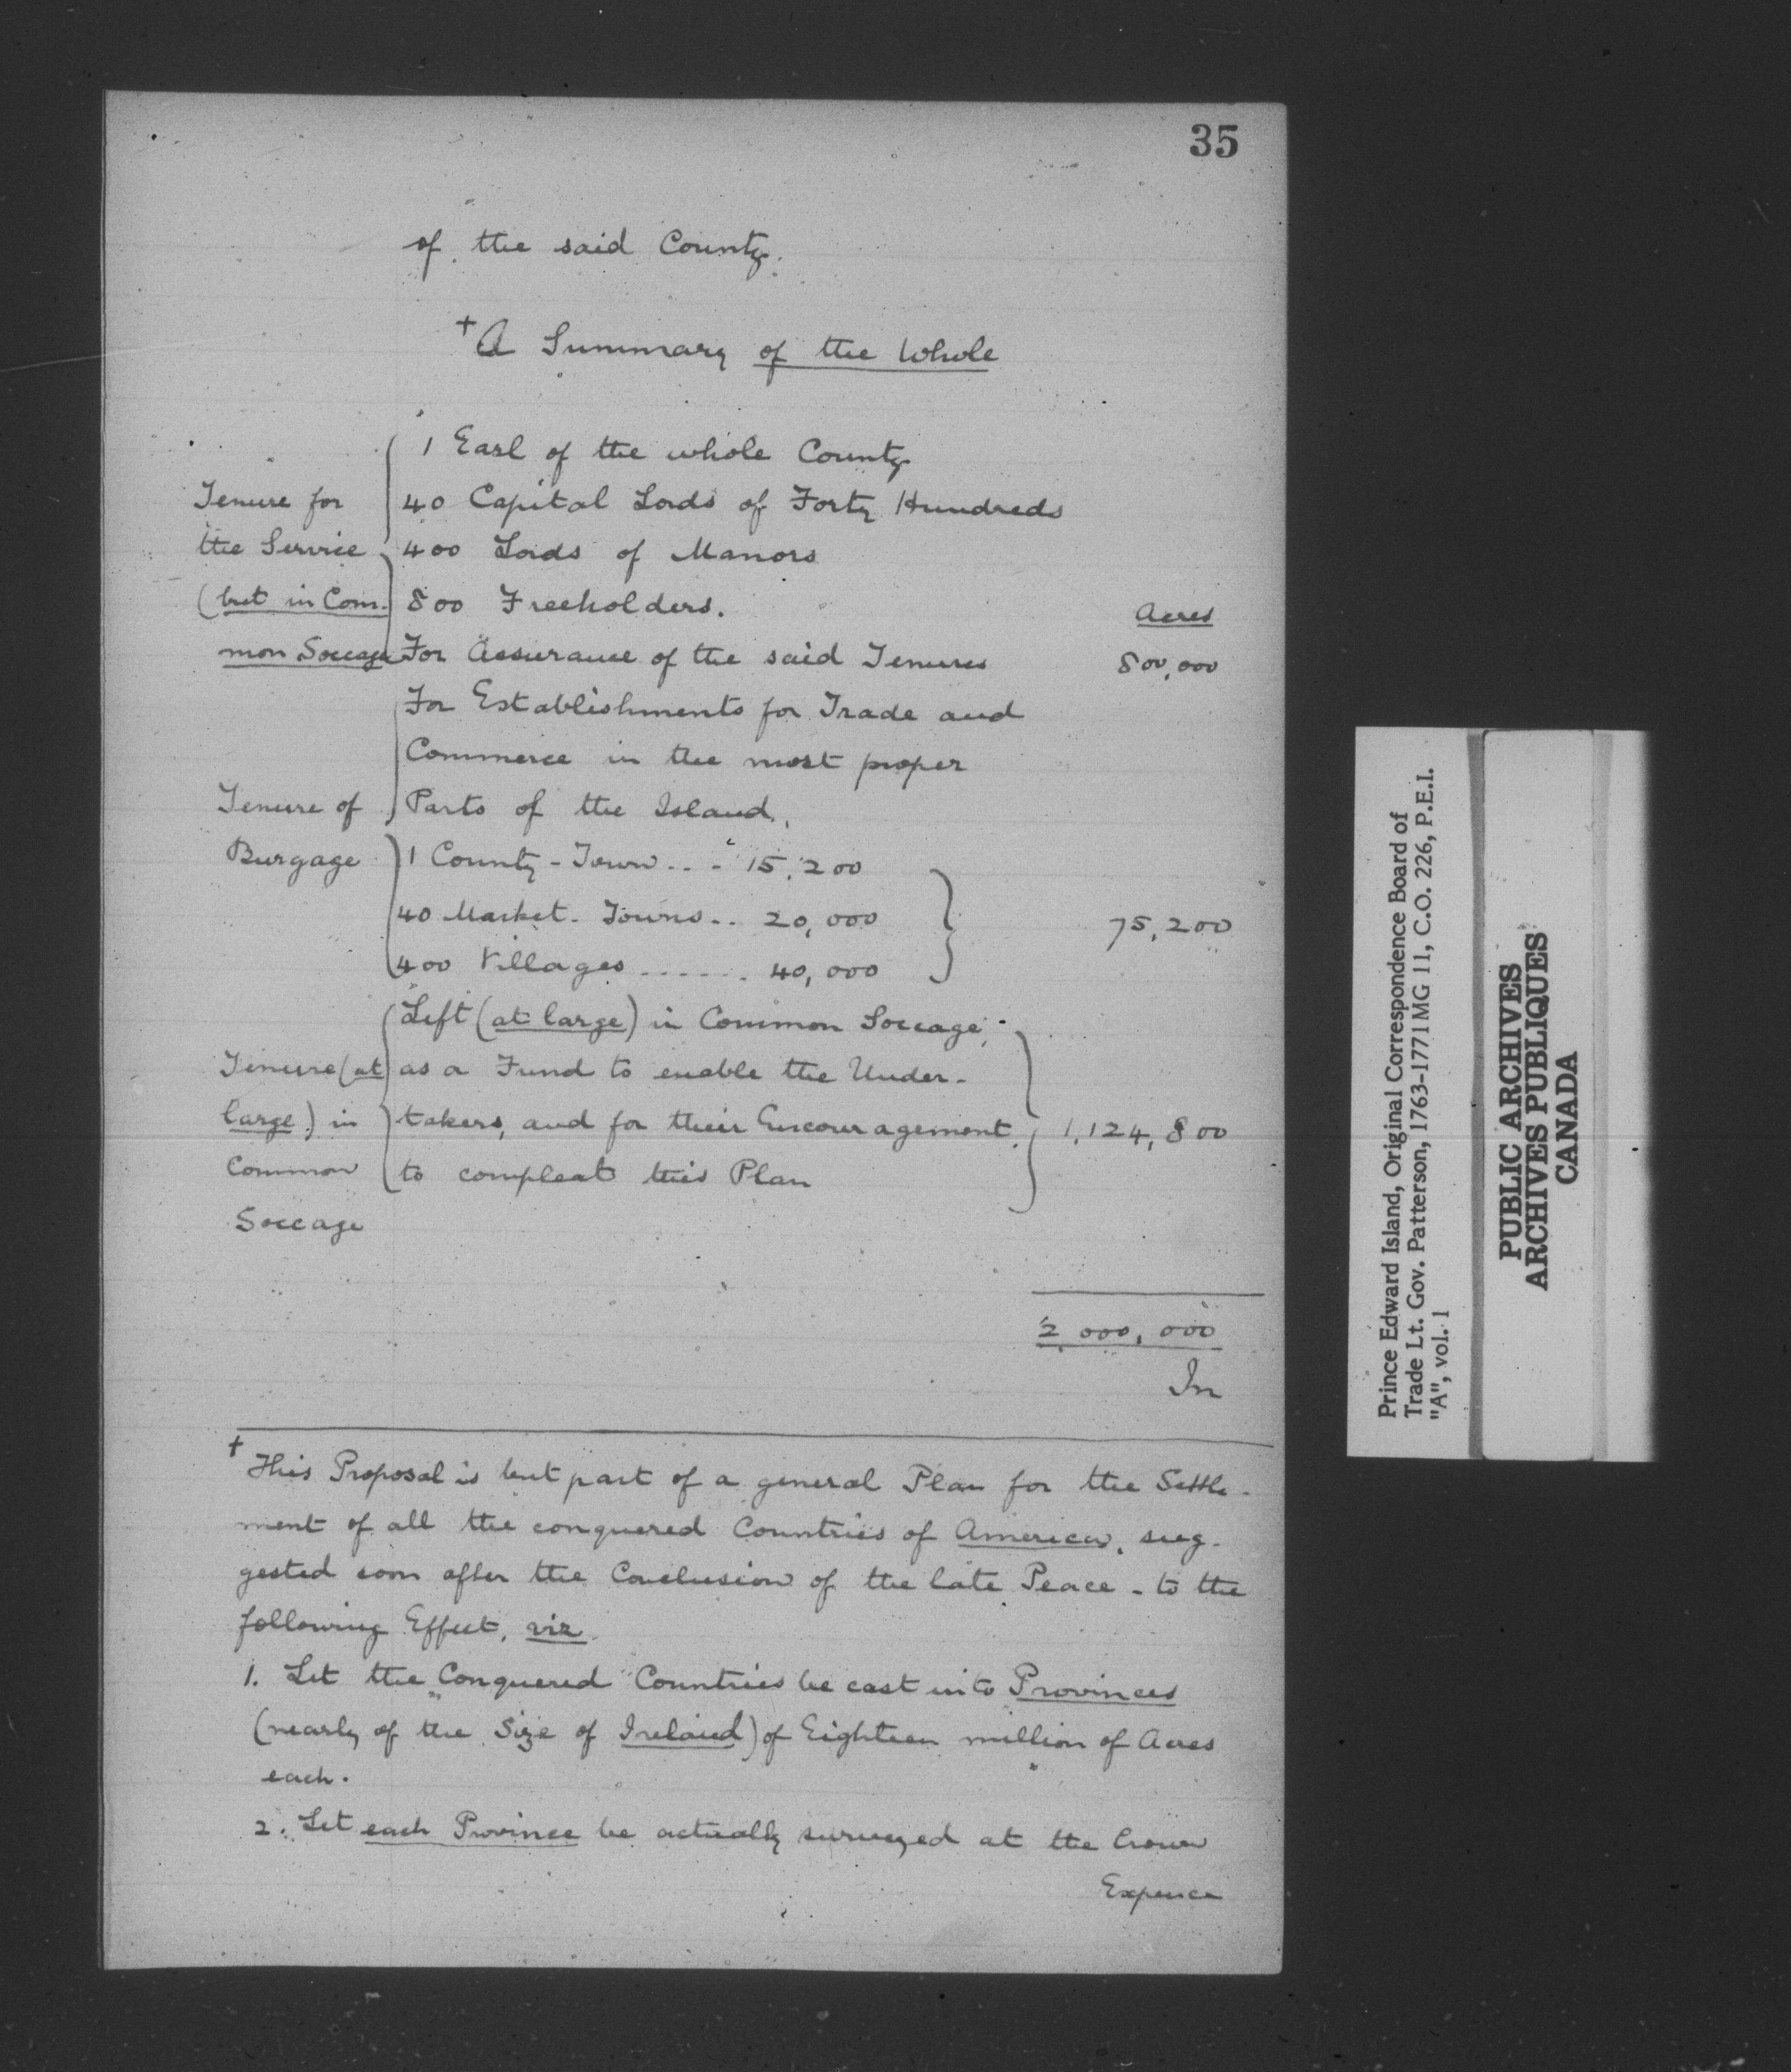 35
of the said County.
+A Summary of the Whole
1 Earl of the whole County
Tenure for 40 Capital Lords of Forty Hundreds
the Service 400 Lords of Manors
(but in Com- 800 Freeholders.
Acres
mon Soccage For Assurance of the said Tenures 800,000
For Establishments for Trade and
Commerce in the most proper
Tenure of Parts of the Island.
Burgage 1 County-Town... 15,200
40 Market-Towns.. 20,000 75,200
400 Villages ...... 40,000
Left (at large) in Common Soccage,
Tenure (at as a Fund to enable the Under-
large) in takers, and for their Encouragement 1,124,800
Common to compleat this Plan
Soccage
2,000,000
In
+ This Proposal is but part of a general Plan for the Settle-
ment of all the conquered Countries of America, sug-
gested soon after the Conclusion of the late Peace - to the
following Effect, viz.
1. Let the Conquered Countries be cast into Provinces
(nearly of the Size of Ireland) of Eighteen million of Acres
each.
2. Let each Province be actually surveyed at the Crown
Expence
Prince Edward Island, Original Correspondence Board of
Trade Lt. Gov. Patterson, 1763-1771 MG 11, C.O. 226, P.E.I.
"A", vol. 1
PUBLIC ARCHIVES
ARCHIVES PUBLIQUES
CANADA